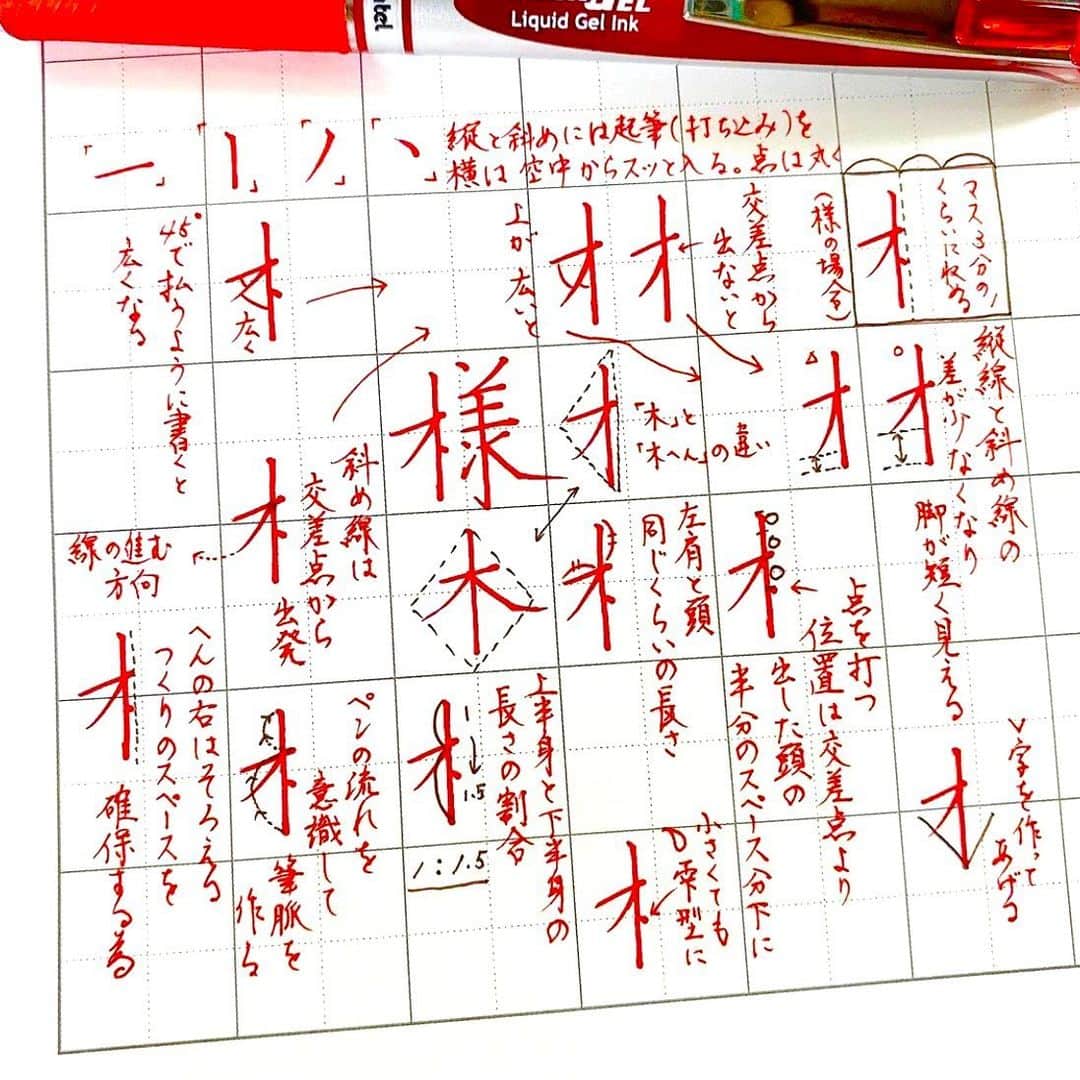 Liquid Gel Ink
「一」「丨」「ノ」「丶」
縦と斜めには起筆(打ち込み)を
横は空中からスッと入る。点は丸く
マス3分の1
くらいに収める
(様の場合)
交差点から
出ないと
上が広いと
広く
45°で払うように書くと
広くなる
縦線と斜め線の
差が少なくなり
脚が短く見える
「木」と
「木へん」の違い
様
木
斜め線は
交差点から
出発
線の進む
方向
左肩と頭
同じくらいの長さ
点を打つ
位置は交差点より
出した頭の
半分のスペース分下に
V字を作って
あげる
小さくても
雫型に
上半身と下半身の
長さの割合
1
1.5
1:1.5
ペンの流れを
意識して
筆脈を
作る
へんの右はそろえる
つくりのスペースを
確保する為